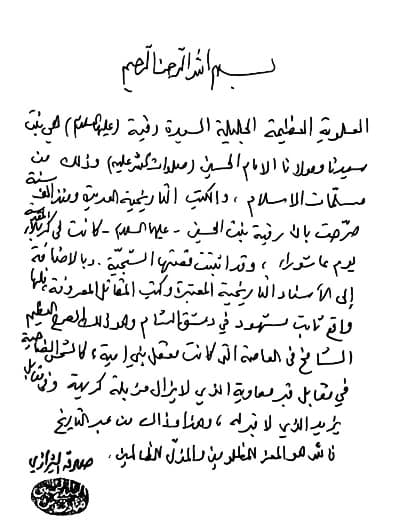 بسم الله الرحمن الرحيم
العلوية العظيمة الجليلة السيدة رقية (عليها السلام) هي بنت
سيدنا ومولانا الامام الحسين (صلوات الله عليه) وذلك من
مسلمات الاسلام، والكتب التاريخية العديدة ومنذ الف سنة
صرّحت بأن رقية بنت الحسين - عليها السلام - كانت في كربلاء
يوم عاشوراء، وقد اثبتت قصتها الشجيّة. وبالاضافة
إلى الأسناد التاريخية المعتبرة وكتب المقاتل المعروفة، بلها
واقع ثابت مشهود في دمشق الشام وهو ذلك الصرح العظيم
الشامخ في العاصمة التي كانت معقل بني امية، كالشمس الضاحية
في مقابل قبر معاوية الذي لايزال مزبلة كريهة وفي مقابل
يزيد الذي لا قبر له، وهذا وذاك من عبر التاريخ
فالله هو المعز للمظلومين والمذلّ للظالمين.
صادق الشيرازي